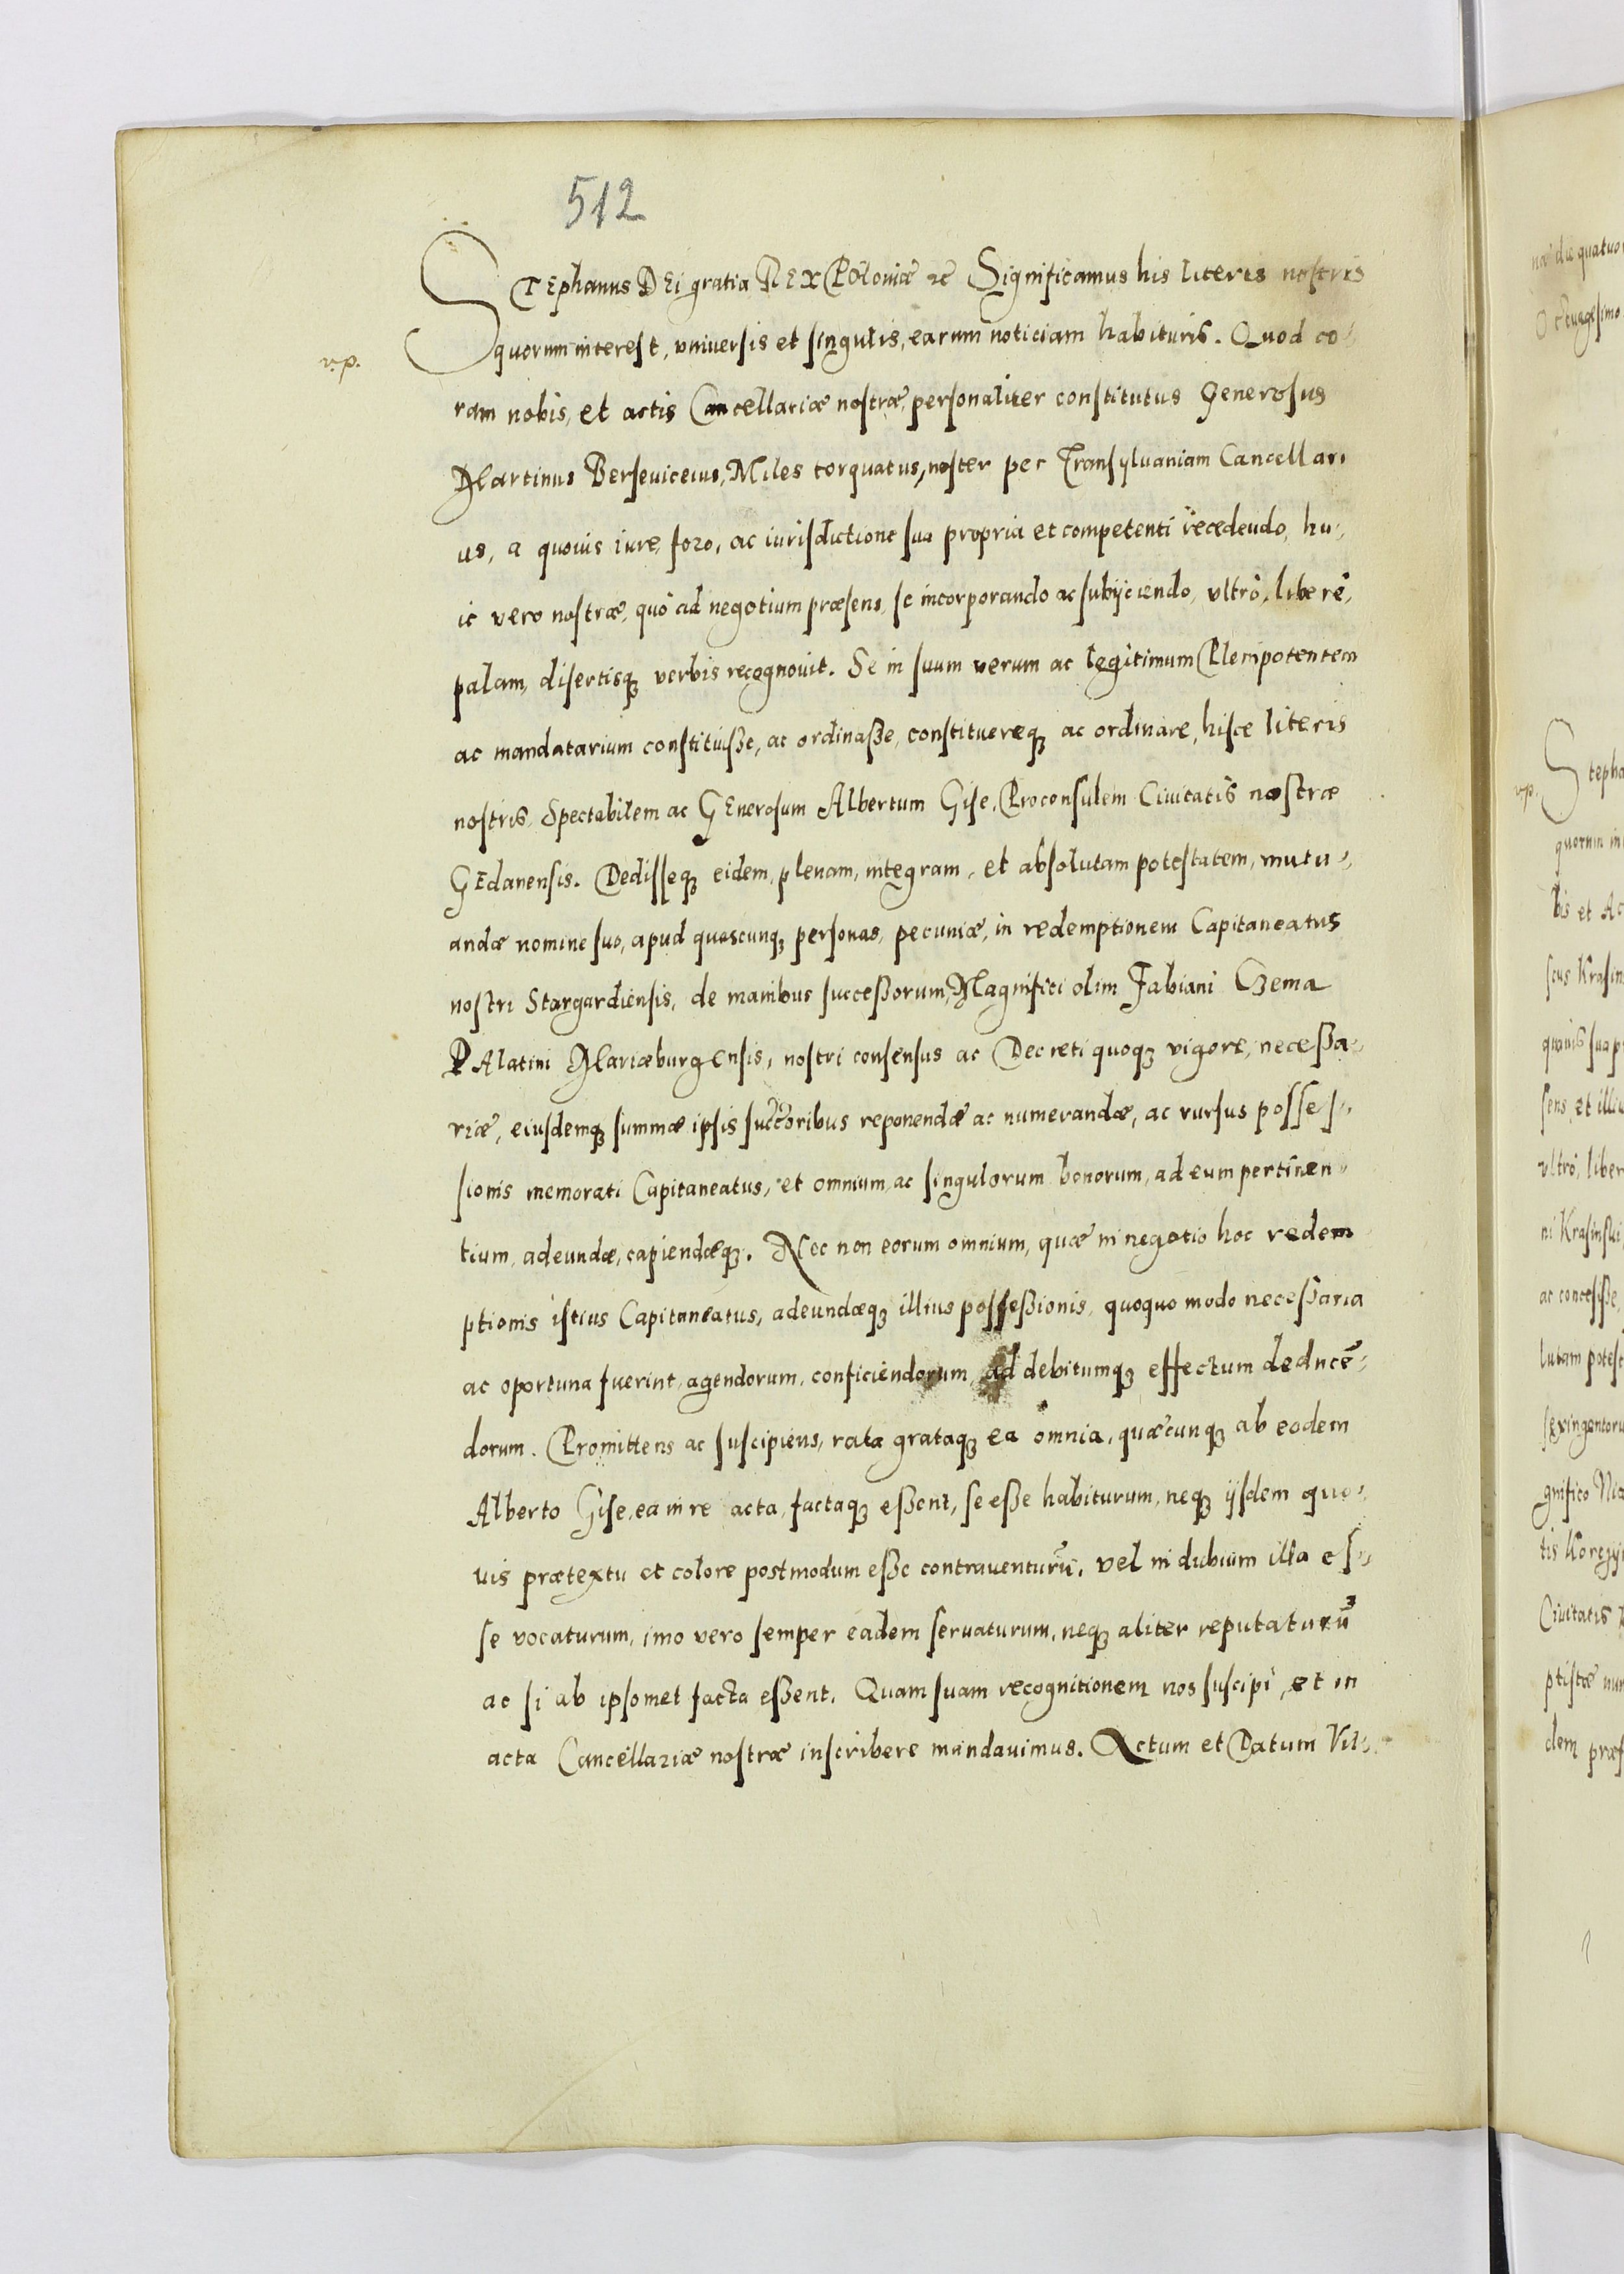 512
STEphanus DEi gratia REX POloniæ etc Significamus his literis nostris
v.p.
quorum interest, vniuersis et singulis, earum noticiam habituris. Quod co-
ram nobis, et actis Cancellariæ nostræ, personaliter constitutus Generosus
Martinus Berseuiceius, Miles torquatus, noster per Transyluaniam Cancellari
us, a quouis iure, foro, ac iurisdictione sua propria et competenti recedendo, hu-
ic vero nostræ, quo ad negotium præsens, se incorporando ac subijciendo, vltrò, liberè,
palam, disertisq; verbis recognouit. Se in suum verum ac legitimum Plenipotentem
ac mandatarium constituiße, ac ordinaße, constituereq; ac ordinare, hisce literis
nostris, Spectabilem ac GEnerosum Albertum Gise, Proconsulem Ciuitatis nostræ
GEdanensis. Dedisseq; eidem, plenam, integram, et absolutam potestatem, mutu-
andæ nomine suo, apud quascunq; personas, pecuniæ, in redemptionem Capitaneatus
nostri Stargardiensis, de manibus succeßorum, Magnifici olim Fabiani Czema
PAlatini Mariæburgensis, nostri consensus ac Decreti quoq; vigore, neceßa-
riæ, eiusdemq; summæ ipsis succcoribus reponendæ ac numerandæ, ac rursus posses-
sionis memorati Capitaneatus, et omnium, ac singulorum bonorum, ad eum pertinen-
tium, adeundæ, capiendæq;. Nec non eorum omnium, quæ in negotio hoc redem
ptionis istius Capitaneatus, adeundæq; illius posseßionis, quoquo modo neceßaria
ac oportuna fuerint, agendorum, conficiendorum, ad debitumq; effectum deducē-
dorum. Promittens ac suscipiens, rata grataq; ea omnia, quæcunq; ab eodem
Alberto Gise, ea in re acta, factaq; eßent, se eße habiturum, neq; ijsdem quo-
uis prætextu et colore postmodum eße contrauenturū, vel in dubium illa es-
se vocaturum, imo vero semper eadem seruaturum, neq; aliter reputaturū
ac si ab ipsomet facta eßent. Quam suam recognitionem nos suscipi, et in
acta Cancellariæ nostræ inscribere mandauimus. Actum et Datum Vil-
næ die quatuor
v.p.
Stepha
quorum in
bis et Ac
quouis sua p
sens, et illiu
vltrò, liber
ni Krasinski
ac conceßiße,
lutam potest
gnifico Nic
Ciuitatis
ptistæ nun
dem præf